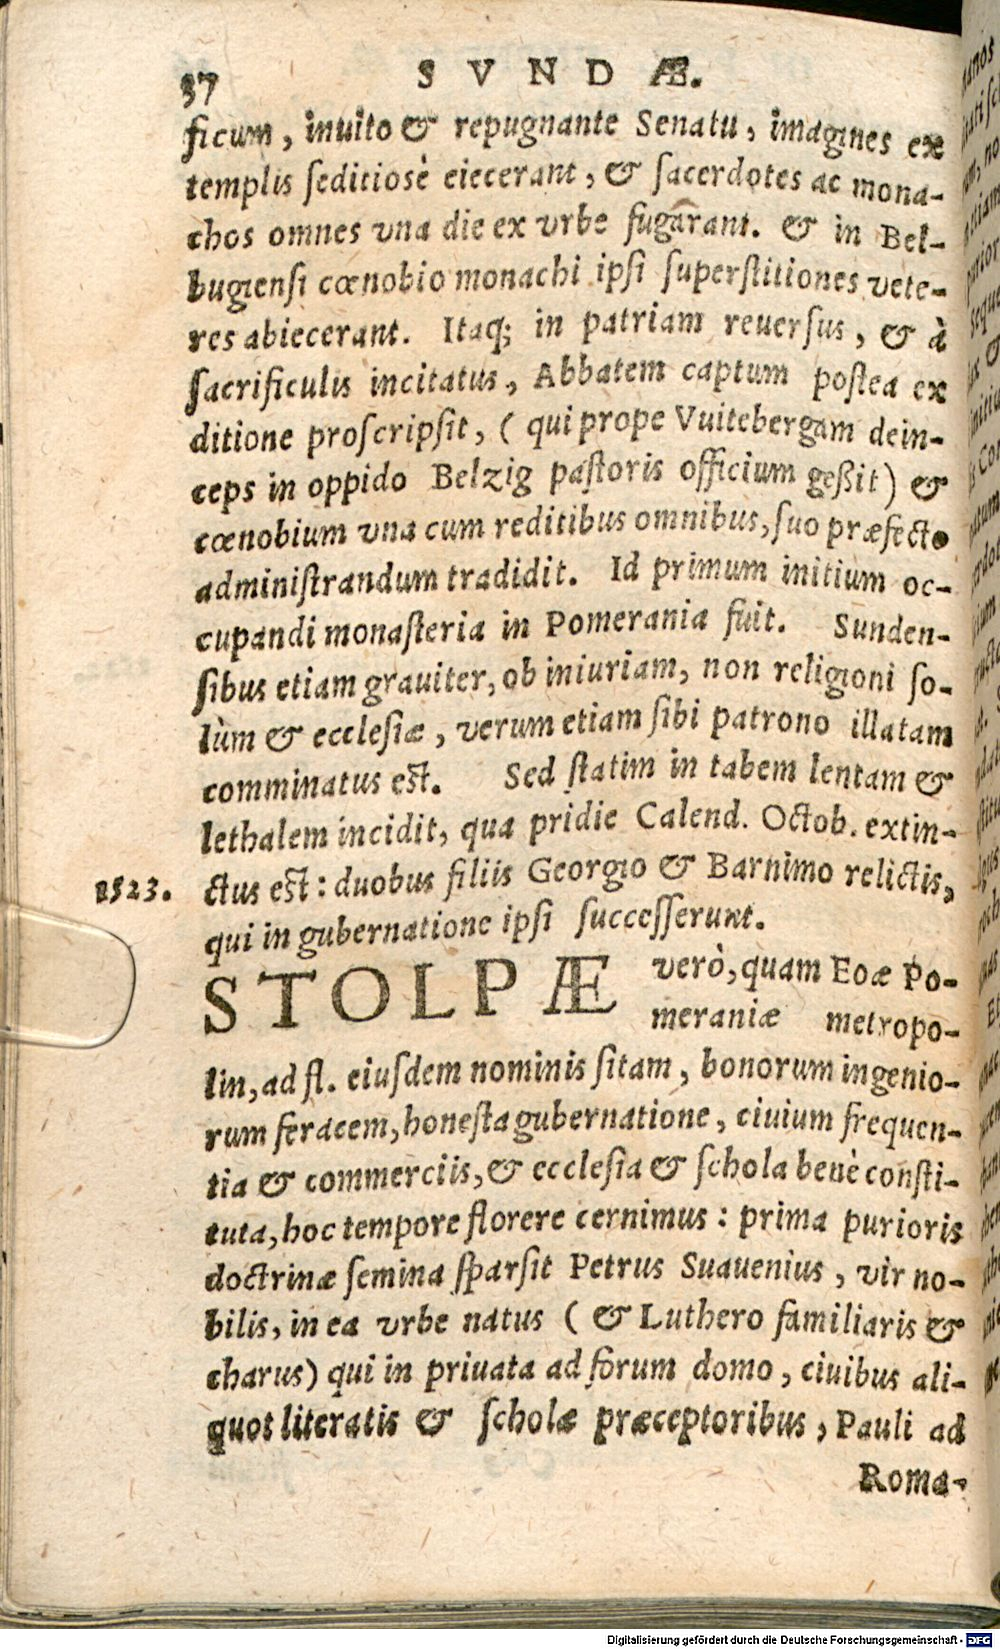 37 SVNDÆ.
ficum, inuito & repugnante Senatu, imagines ex
templis ſeditioſè eiecerant, & ſacerdotes ac mona-
chos omnes vna die ex vrbe fugârant. & in Bel-
bugienſi cœnobio monachi ipſi ſuperſtitiones vete-
res abiecerant. Itaq; in patriam reuerſus, & à
ſacrificulis incitatus, Abbatem captum poſtea ex
ditione proſcripſit, (qui prope Vuitebergam dein-
ceps in oppido Belzig paſtoris officium geßit) &
cœnobium vna cum reditibus omnibus, ſuo præfecto
adminiſtrandum tradidit. Id primum initium oc-
cupandi monaſteria in Pomerania fuit. Sunden-
ſibus etiam grauiter, ob iniuriam, non religioni ſo-
lùm & eccleſiæ, verum etiam ſibi patrono illatam
comminatus eſt. Sed ſtatim in tabem lentam &
lethalem incidit, qua pridie Calend. Octob. extin-
1523. ctus eſt: duobus filiis Georgio & Barnimo relictis,
qui in gubernatione ipſi ſucceſſerunt.
STOLPÆ verò, quam Eoæ Po-
meraniæ metropo-
lin, ad fl. eiuſdem nominis ſitam, bonorum ingenio-
rum feracem, honeſta gubernatione, ciuium frequen-
tia & commerciis, & eccleſia & ſchola benè conſti-
tuta, hoc tempore florere cernimus: prima purioris
doctrinæ ſemina ſparſit Petrus Suauenius, vir no-
bilis, in ea vrbe natus (& Luthero familiaris &
charus) qui in priuata ad forum domo, ciuibus ali-
quot literatis & ſcholæ præceptoribus, Pauli ad
Roma-
Digitalisierung gefördert durch die Deutsche Forschungsgemeinschaft - DFG